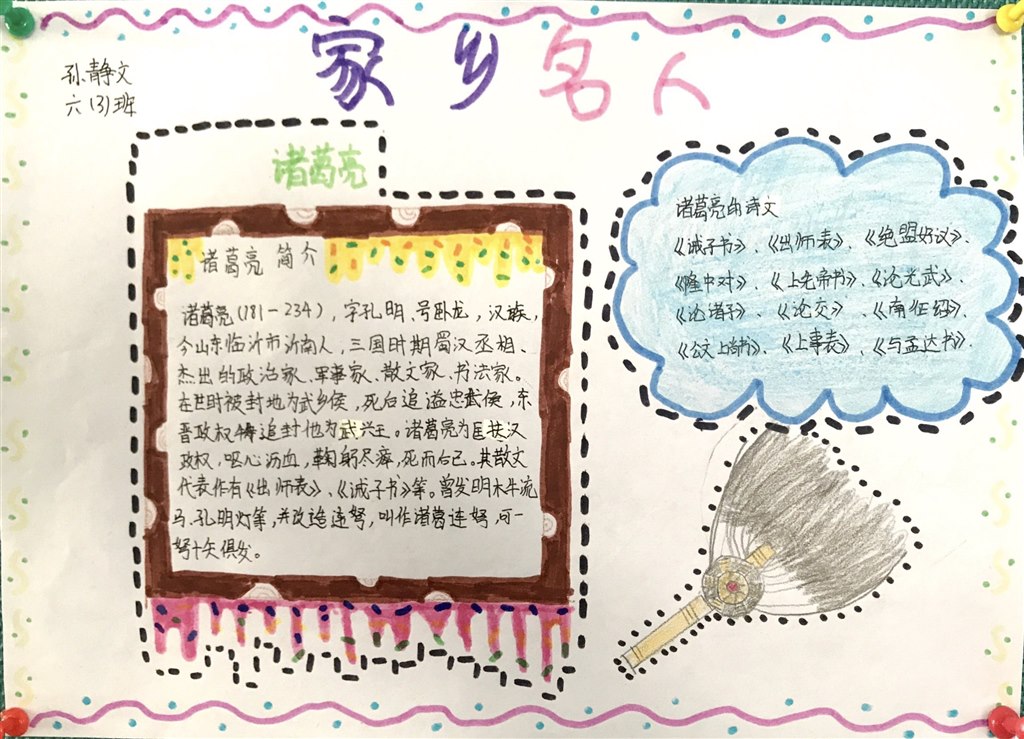 家乡名人
孙静文
六(3)班
诸葛亮
诸葛亮 简介
诸葛亮(181-234),字孔明、号卧龙,汉族,
今山东临沂市沂南人,三国时期蜀汉丞相、
杰出的政治家、军事家、散文家、书法家。
在世时被封地为武乡侯,死后追谥忠武侯,东
晋政权特追封他为武兴王。诸葛亮为匡扶汉
政权,呕心沥血,鞠躬尽瘁,死而后已。其散文
代表作有《出师表》、《诫子书》等。曾发明木牛流
马、孔明灯等,并改造连弩,叫作诸葛连弩,可一
弩十矢俱发。
诸葛亮的诗文
《诫子书》、《出师表》、《绝盟好议》、
《隆中对》、《上先帝书》、《论光武》、
《论诸子》、《论交》、《南作绍》、
《公文上尚书》、《上事表》、《与孟达书》.